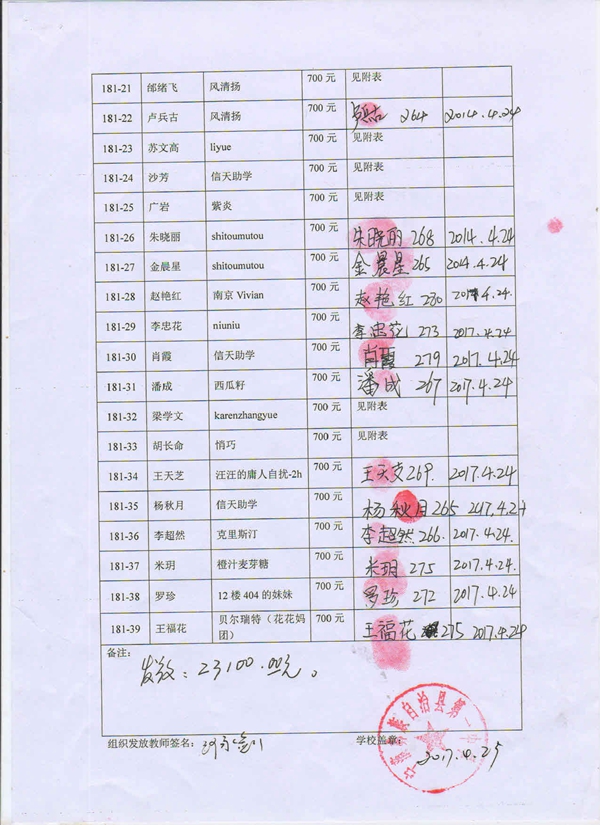 181-21 邰绪飞 风清扬 700 元 见附表
181-22 卢兵古 风清扬 700 元 264 2014.4.24
181-23 苏文高 liyue 700 元 见附表
181-24 沙芳 信天助学 700 元 见附表
181-25 广岩 紫炎 700 元 见附表
181-26 朱晓丽 shitoumutou 700 元 朱晓丽 268 2014.4.24
181-27 金晨星 shitoumutou 700 元 金晨星 265 2014.4.24
181-28 赵艳红 南京 Vivian 700 元 赵艳红 280 4.24.
181-29 李忠花 niuniu 700 元 李忠花 273 2017.4.24
181-30 肖霞 信天助学 700 元 肖霞 279 2017.4.24
181-31 潘成 西瓜籽 700 元 潘成 267 2017.4.24
181-32 梁学文 karenzhangyue 700 元 见附表
181-33 胡长命 悄巧 700 元 见附表
181-34 王天芝 汪汪的庸人自扰-2h 700 元 王天芝 269. 2017.4.24
181-35 杨秋月 信天助学 700 元 杨秋月 265 2017.4.24
181-36 李超然 克里斯汀 700 元 李超然 266. 2017.4.24.
181-37 米玥 橙汁麦芽糖 700 元 米玥 275 2017.4.24.
181-38 罗珍 12 楼 404 的妹妹 700 元 罗珍 272 2017.4.24
181-39 王福花 贝尔瑞特（花花妈团） 700 元 王福花 275 2017.4.24
备注：
发放：23100.00元。
组织发放教师签名： 学校盖章：
族自治县第一中
2017.4.25